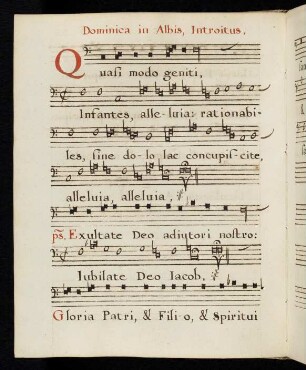 Dominica in Albis, Introitus.
Quasi modo geniti,
Infantes, alle-luia: rationabi-
les, sine do-lo lac concupis-cite,
alleluia, alleluia.
ps. Exultate Deo adjutori nostro:
Iubilate Deo Iacob.
Gloria Patri, & Fili-o, & Spiritui